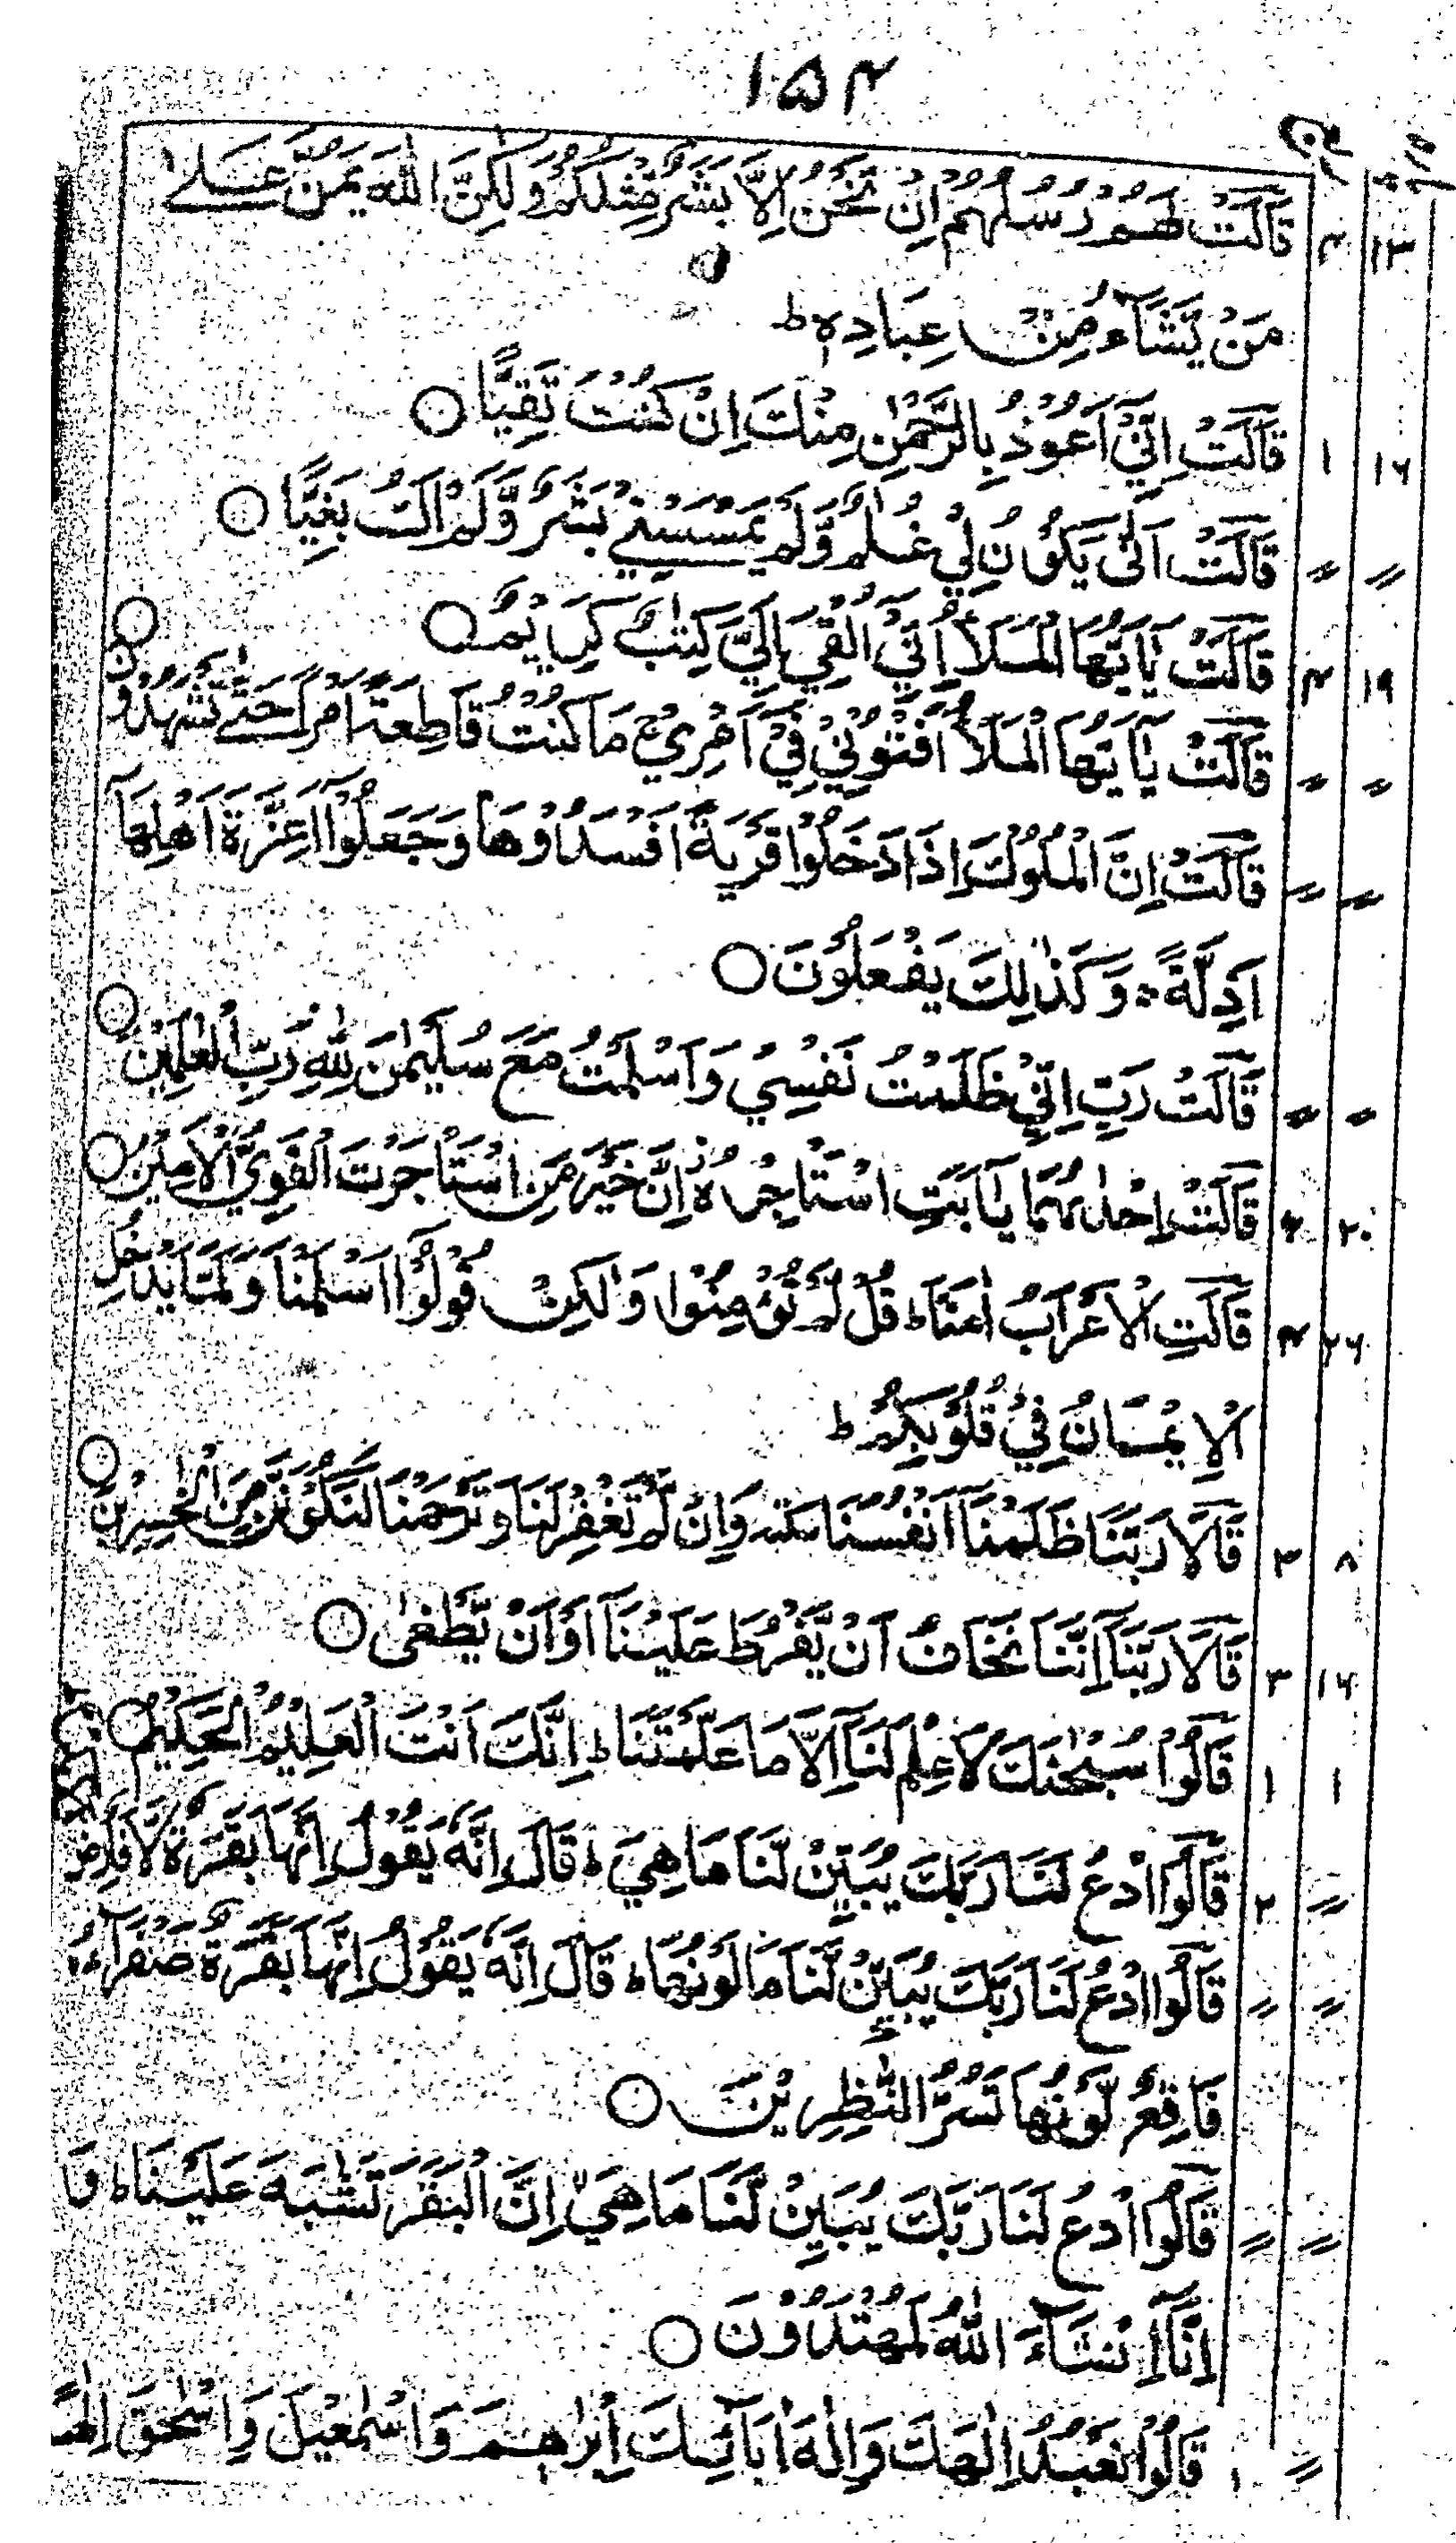 ۱۵۴
قَالَتْ لَهُمْ رُسُلُهُمْ اِنْ نَّحْنُ اِلَّا بَشَرٌ مِّثْلُكُمْ وَلٰكِنَّ اللّٰهَ يَمُنُّ عَلٰے ۴ ۱۳
مَنْ يَّشَآءُ مِنْ عِبَادِهٖ ط
قَالَتْ اِنِّيْٓ اَعُوْذُ بِالرَّحْمٰنِ مِنْكَ اِنْ كُنْتَ تَقِيًّا ○ ۱ ۱۶
قَالَتْ اَنّٰى يَكُوْنُ لِيْ غُلٰمٌ وَّلَمْ يَمْسَسْنِيْ بَشَرٌ وَّلَمْ اَكُ بَغِيًّا ○ 〃 〃
قَالَتْ يٰٓاَيُّهَا الْمَلَاُ اِنِّيْٓ اُلْقِيَ اِلَيَّ كِتٰبٌ كَرِيْمٌ ○ ۴ ۱۹
قَالَتْ يٰٓاَيُّهَا الْمَلَاُ اَفْتُوْنِيْ فِيْٓ اَمْرِيْ ج مَا كُنْتُ قَاطِعَةً اَمْرًا حَتّٰے تَشْهَدُوْنِ ○ 〃 〃
قَالَتْ اِنَّ الْمُلُوْكَ اِذَا دَخَلُوْا قَرْيَةً اَفْسَدُوْهَا وَجَعَلُوْٓا اَعِزَّةَ اَهْلِهَآ 〃 〃
اَذِلَّةً ج وَكَذٰلِكَ يَفْعَلُوْنَ ○
قَالَتْ رَبِّ اِنِّيْ ظَلَمْتُ نَفْسِيْ وَاَسْلَمْتُ مَعَ سُلَيْمٰنَ لِلّٰهِ رَبِّ الْعٰلَمِيْنَ ○ 〃 〃
قَالَتْ اِحْدٰىهُمَا يٰٓاَبَتِ اسْتَاْجِرْهُ ز اِنَّ خَيْرَ مَنِ اسْتَاْجَرْتَ الْقَوِيُّ الْاَمِيْنُ ○ ۶ ۲۰
قَالَتِ الْاَعْرَابُ اٰمَنَّا ط قُلْ لَّمْ تُؤْمِنُوْا وَلٰكِنْ قُوْلُوْٓا اَسْلَمْنَا وَلَمَّا يَدْخُلِ ۴ ۲۶
الْاِيْمَانُ فِيْ قُلُوْبِكُمْ ط
قَالَا رَبَّنَا ظَلَمْنَآ اَنْفُسَنَا سكتہ وَاِنْ لَّمْ تَغْفِرْ لَنَا وَتَرْحَمْنَا لَنَكُوْنَنَّ مِنَ الْخٰسِرِيْنَ ○ ۳ ۸
قَالَا رَبَّنَآ اِنَّنَا نَخَافُ اَنْ يَّفْرُطَ عَلَيْنَآ اَوْ اَنْ يَّطْغٰى ○ ۳ ۱۶
قَالُوْا سُبْحٰنَكَ لَا عِلْمَ لَنَآ اِلَّا مَا عَلَّمْتَنَا ط اِنَّكَ اَنْتَ الْعَلِيْمُ الْحَكِيْمُ ○ ۱ ۱
قَالُوا ادْعُ لَنَا رَبَّكَ يُبَيِّنْ لَّنَا مَا هِيَ ط قَالَ اِنَّهٗ يَقُوْلُ اِنَّهَا بَقَرَةٌ لَّا فَارِضٌ ۲ 〃
قَالُوا ادْعُ لَنَا رَبَّكَ يُبَيِّنْ لَّنَا مَا لَوْنُهَا ط قَالَ اِنَّهٗ يَقُوْلُ اِنَّهَا بَقَرَةٌ صَفْرَآءُ 〃 〃
فَاقِعٌ لَّوْنُهَا تَسُرُّ النّٰظِرِيْنَ ○
قَالُوا ادْعُ لَنَا رَبَّكَ يُبَيِّنْ لَّنَا مَا هِيَ اِنَّ الْبَقَرَ تَشٰبَهَ عَلَيْنَا ط وَ 〃 〃
اِنَّآ اِنْ شَآءَ اللّٰهُ لَمُهْتَدُوْنَ ○
قَالُوْا نَعْبُدُ اِلٰهَكَ وَاِلٰهَ اٰبَآئِكَ اِبْرٰهٖمَ وَاِسْمٰعِيْلَ وَاِسْحٰقَ ۱ 〃